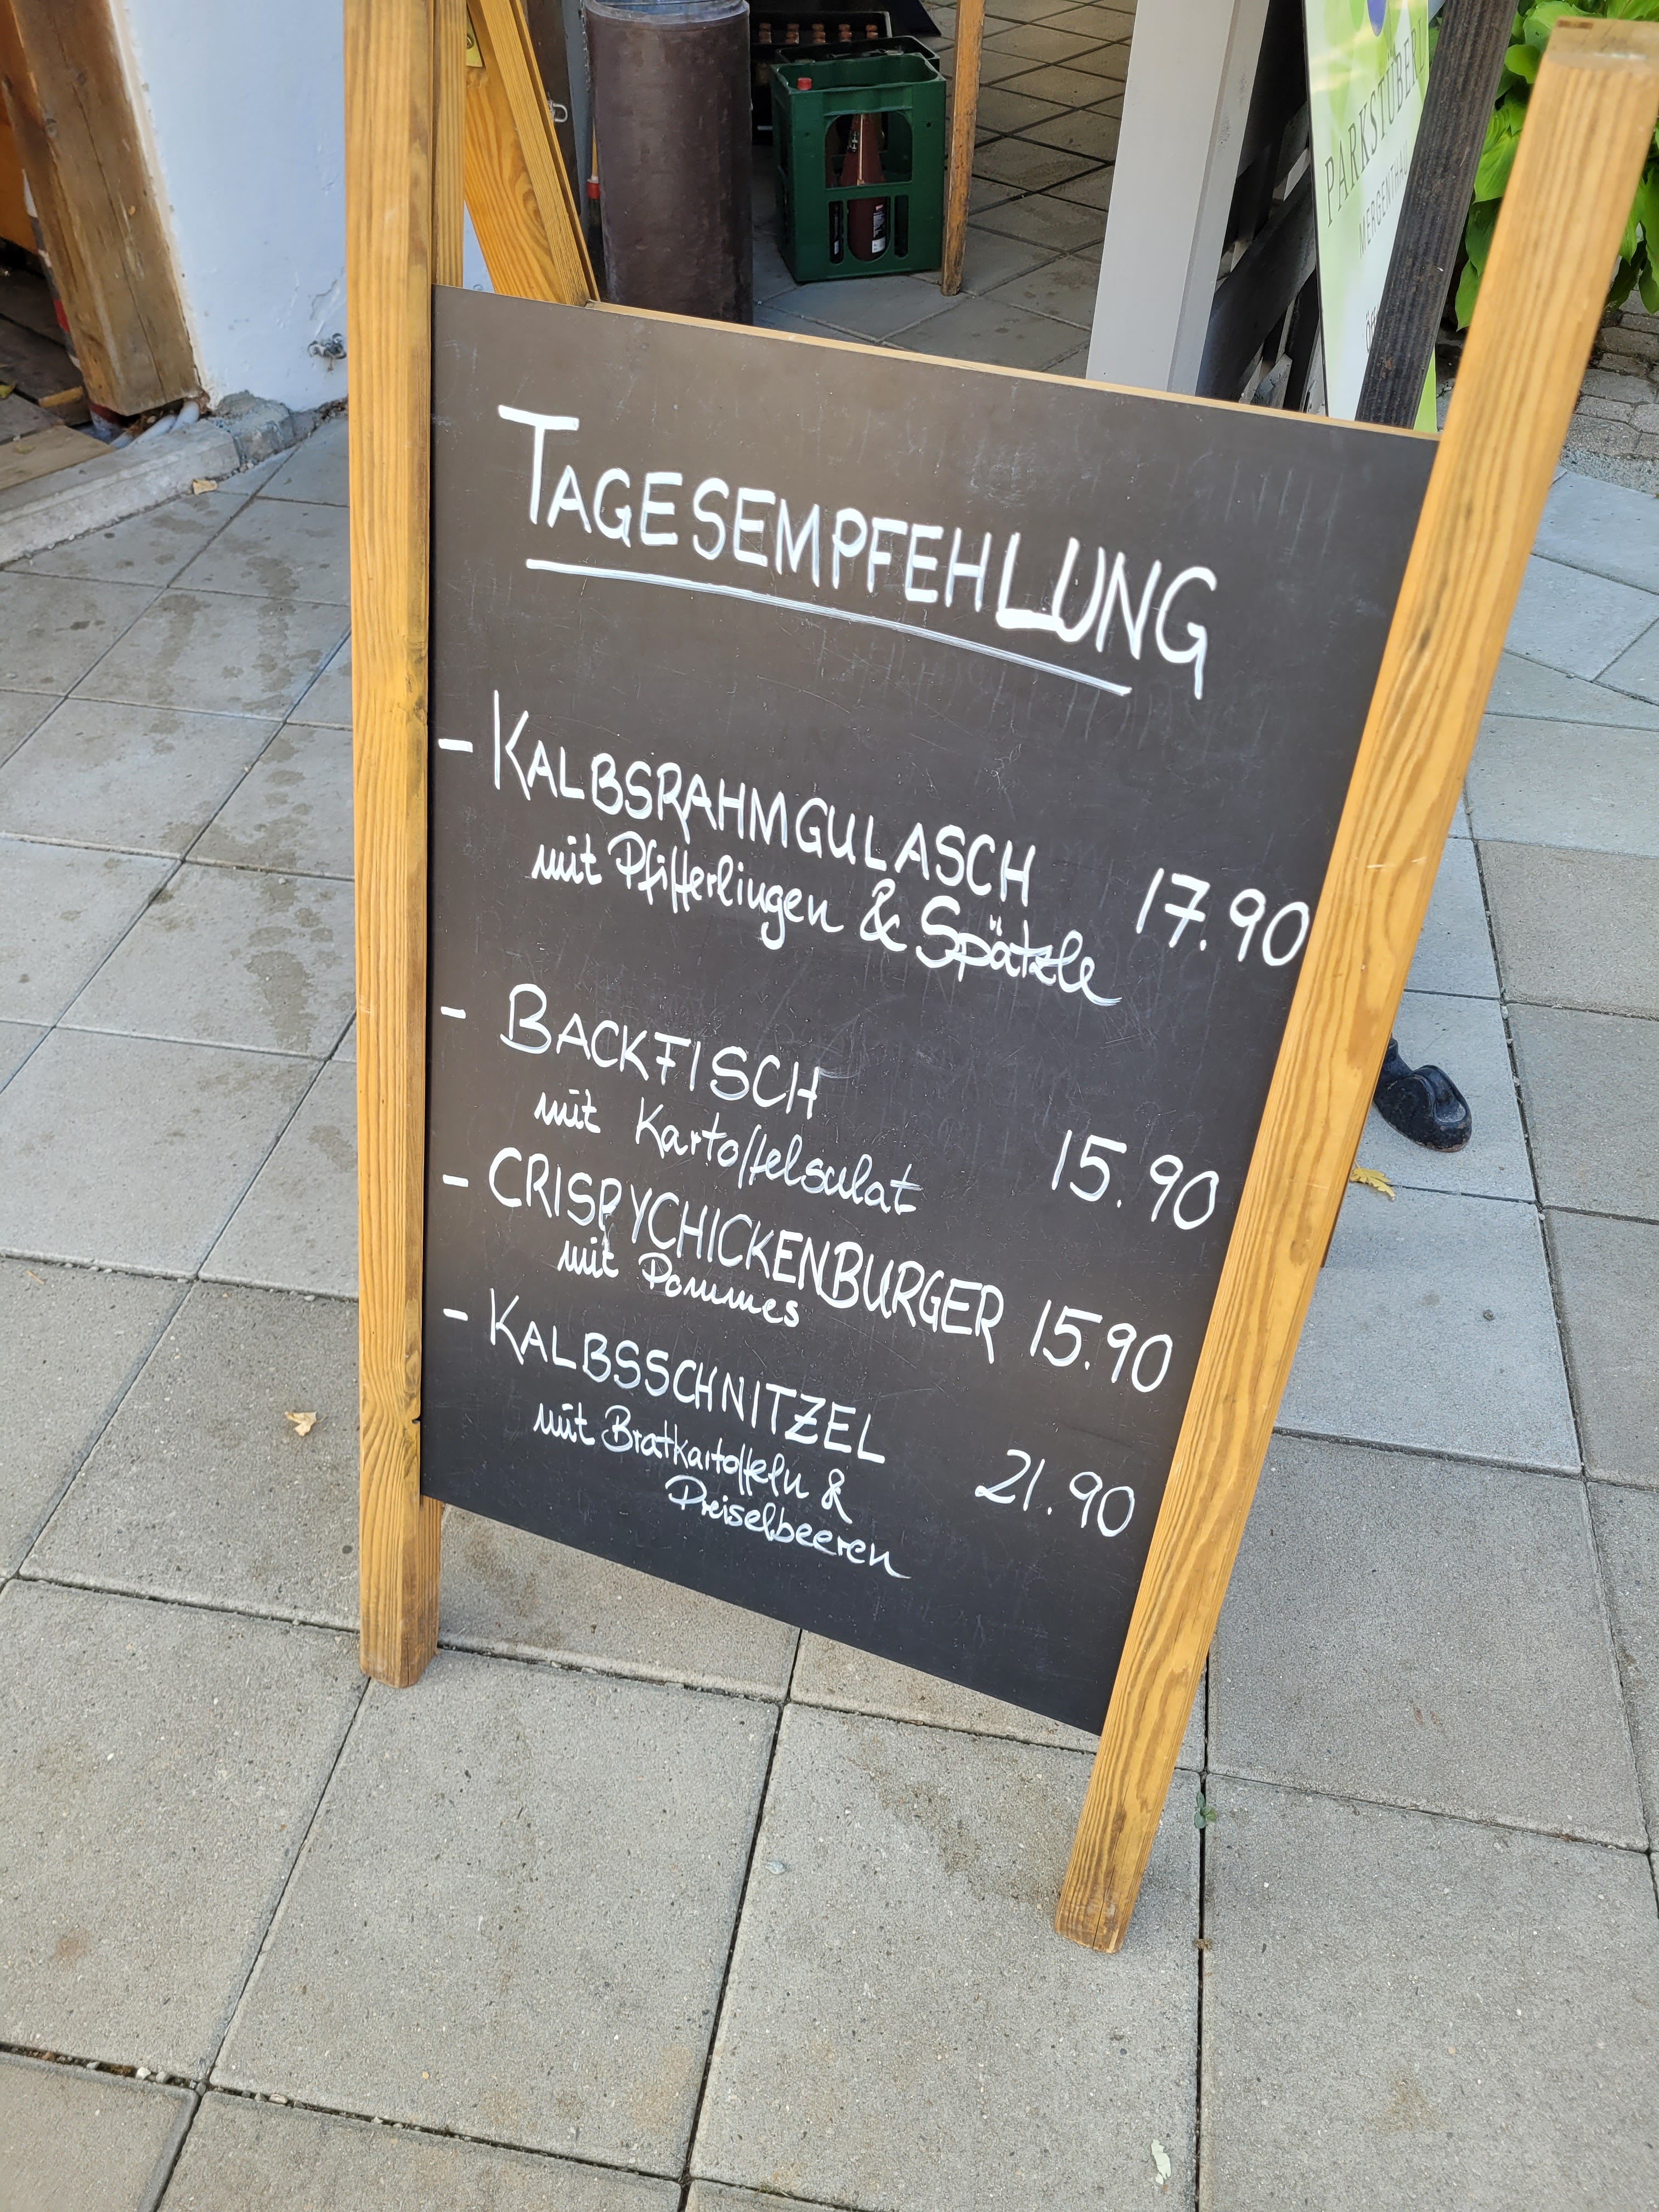 PARKSTÜBERL
TAGESEMPFEHLUNG
- KALBSRAHMGULASCH
mit Pfifferlingen & Spätzle 17.90
- BACKFISCH
mit Kartoffelsalat 15.90
- CRISPYCHICKENBURGER 15.90
mit Pommes
- KALBSSCHNITZEL
mit Bratkartoffeln & 21.90
Preiselbeeren